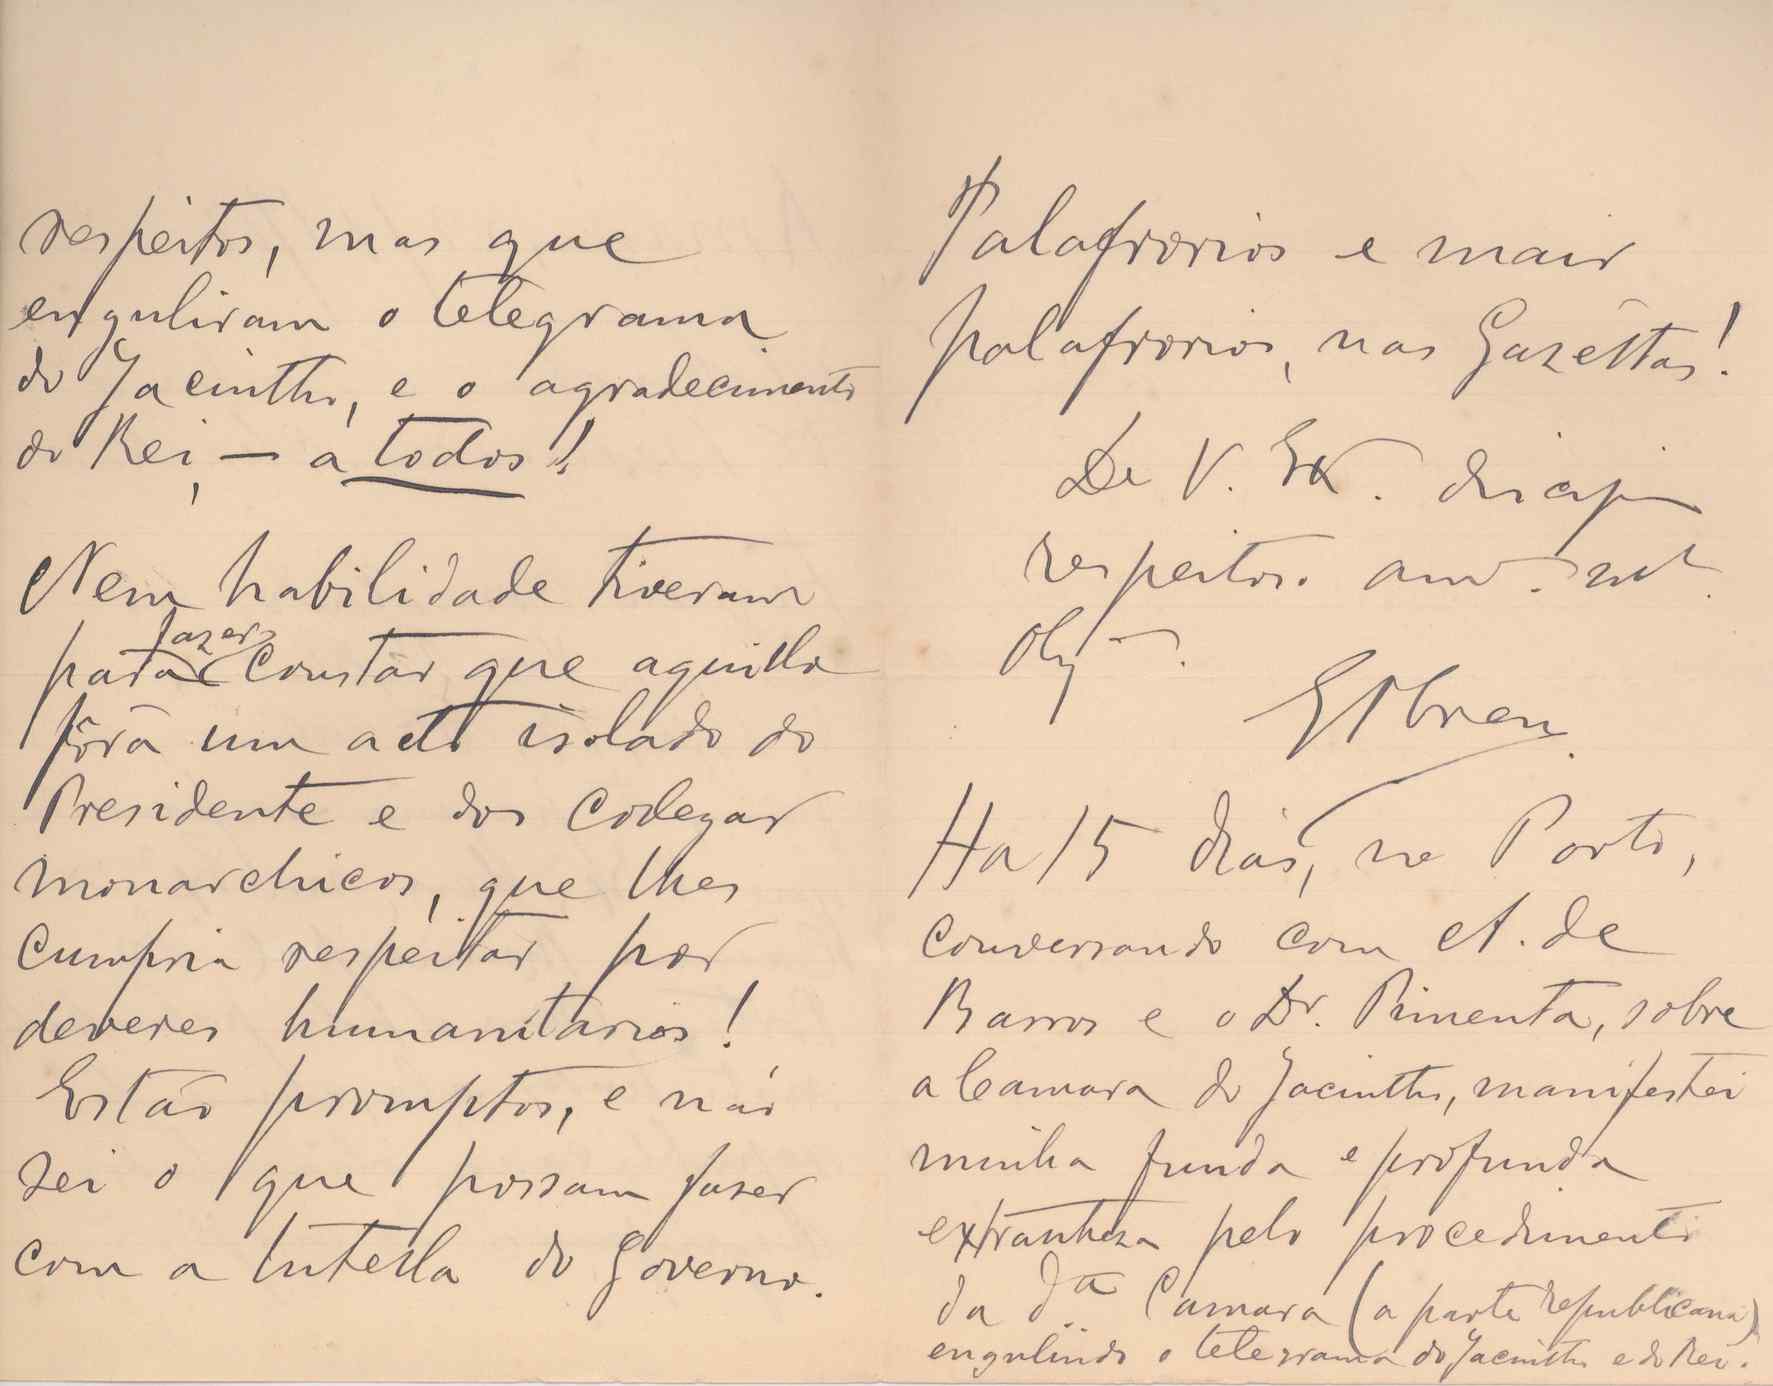 respeitos, mas que
enguliram o telegrama
do Jacintho, e o agradecimento
do Rei, — a todos!
Nem habilidade tiveram
para fazer constar que aquillo
fôra um acto isolado do
Presidente e dos collegas
monarchicos, que lhes
cumpria respeitar por
deveres humanitarios!
Estão promptos, e não
sei o que possam fazer
com a tutella do Governo.
Palafrorios e mais
palafrorios, nas Gazettas!
De V. Ex.
respeitoso am.
Obg.
EAbreu
Ha 15 dias, no Porto,
conversando com A. de
Barros e o Dr. Pimenta, sobre
a Camara do Jacintho, manifestei
minha funda e profunda
extranheza pelo procedimento
da d.ta Camara (a parte republicana)
engulindo o telegrama do Jacintho e do Rei.